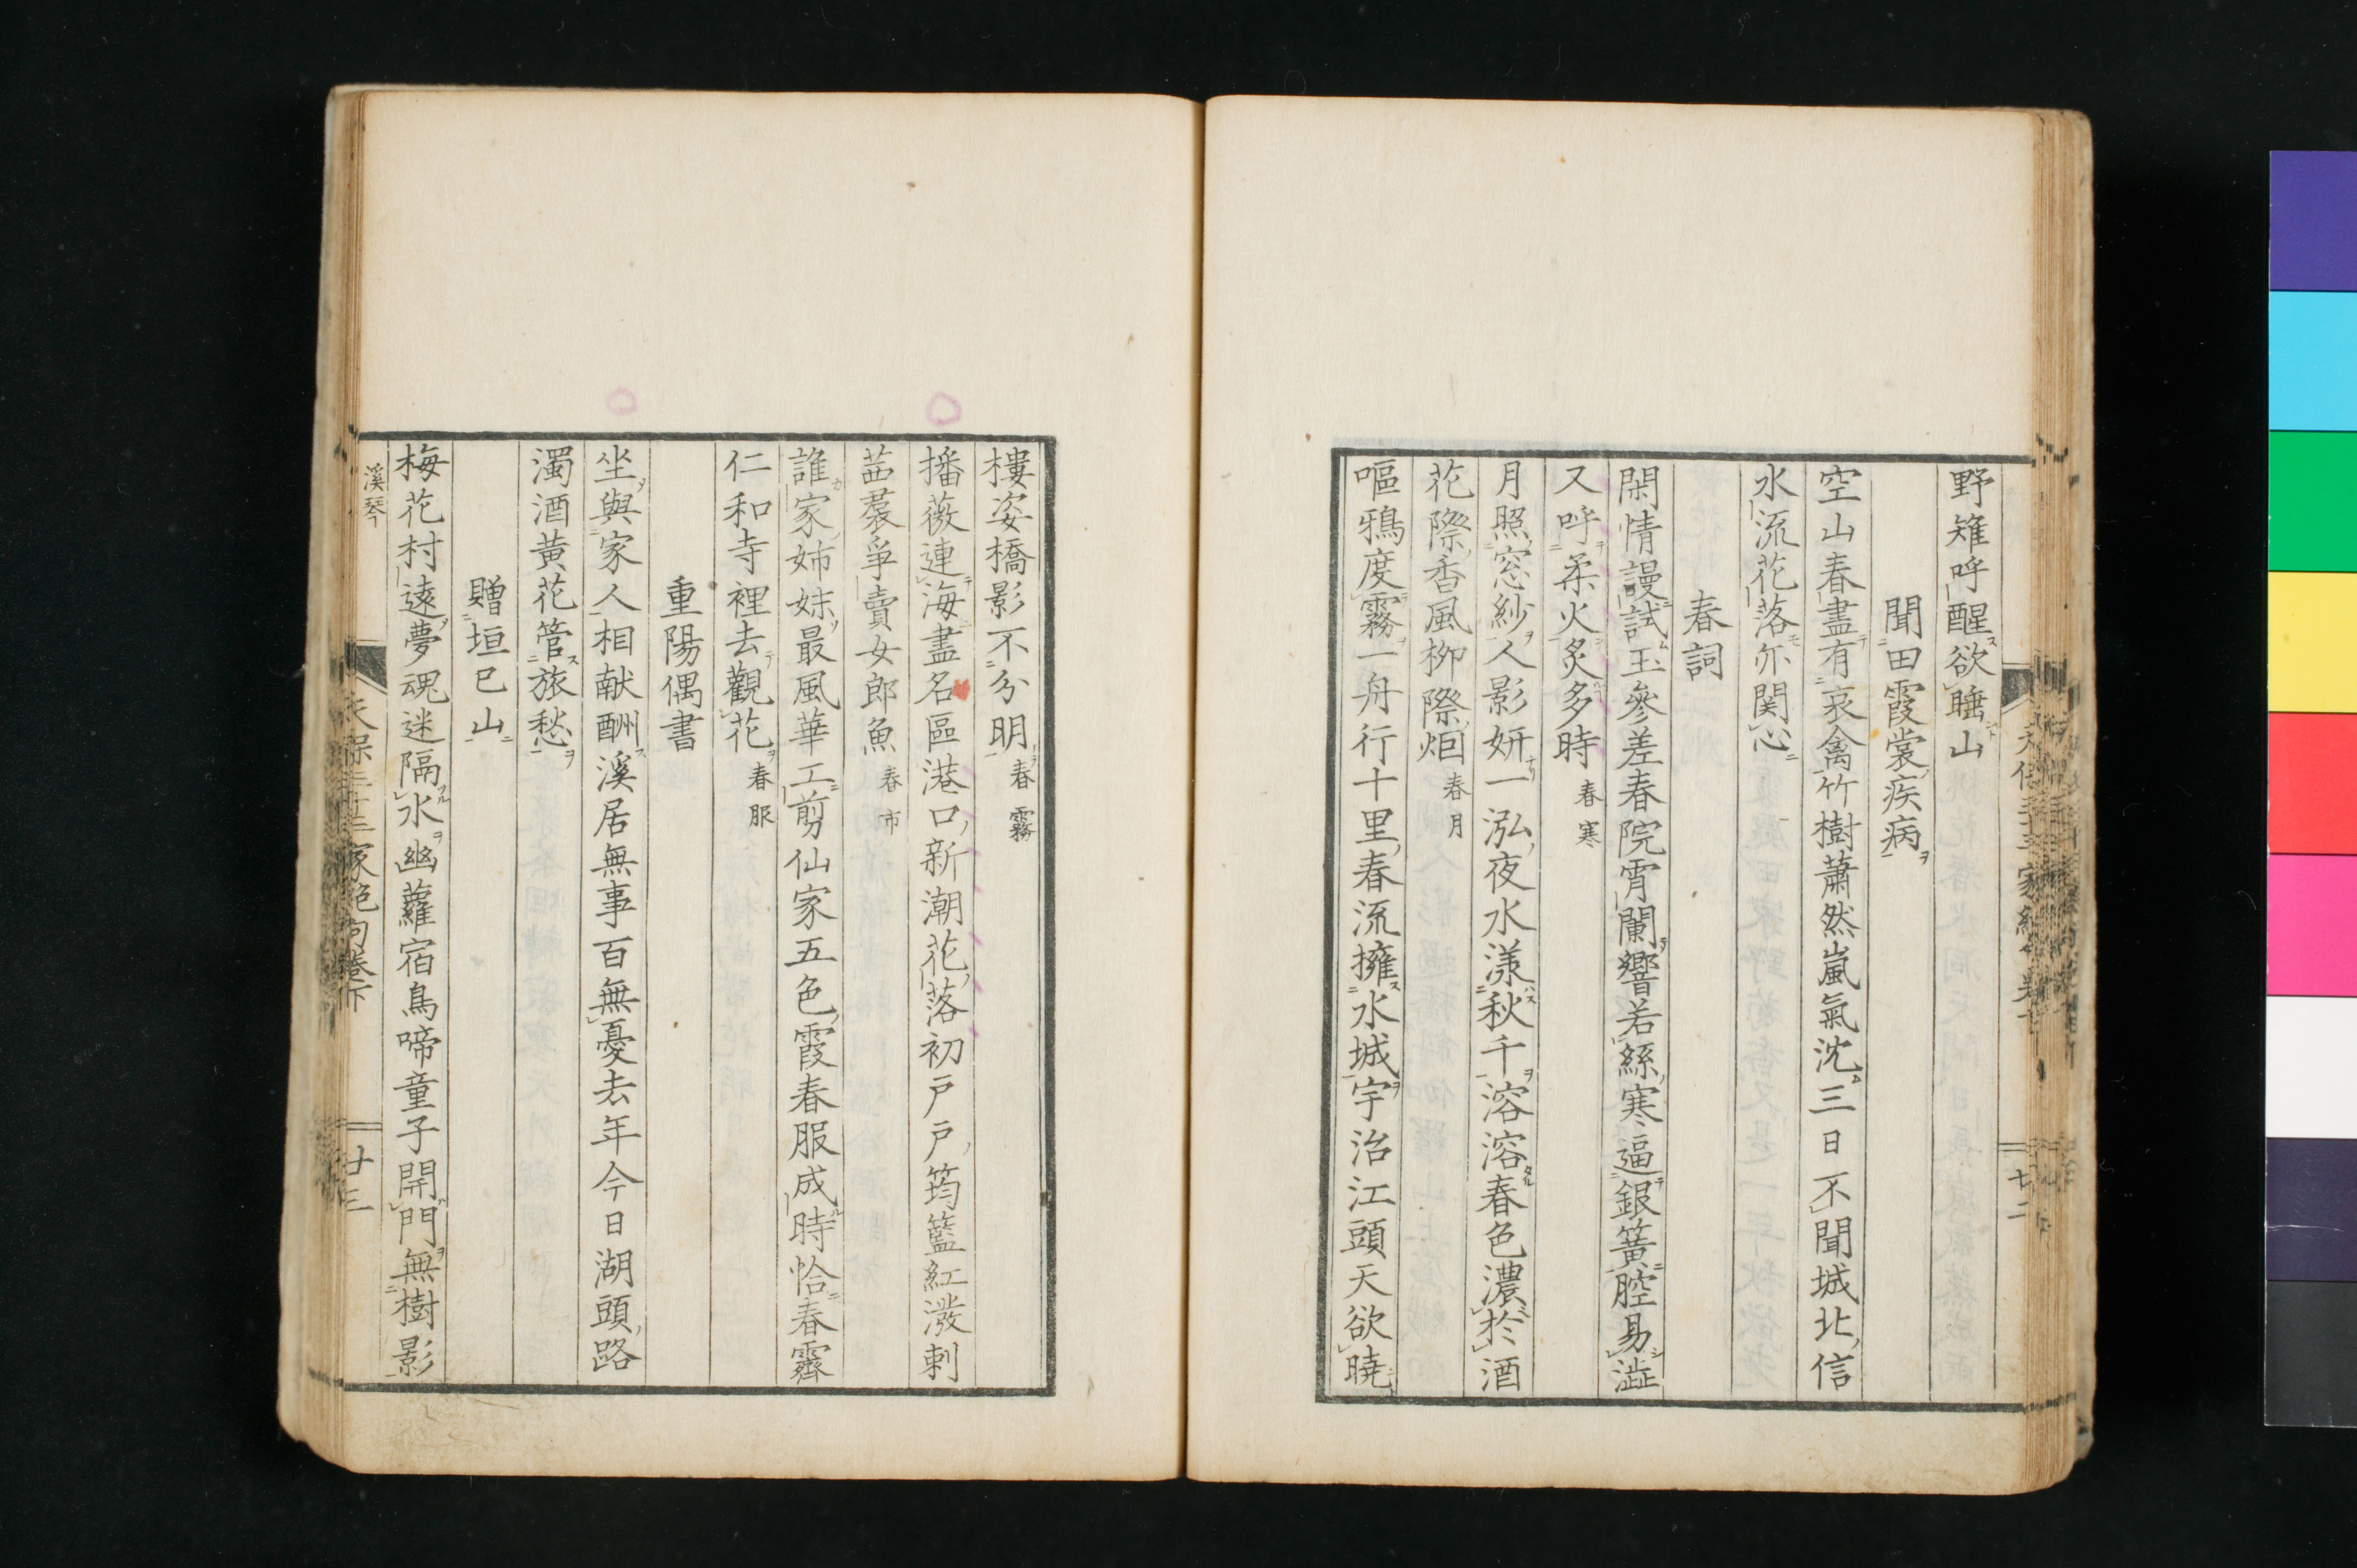 野雉呼醒欲睡山
聞田霞裳疾病
空山春盡有哀禽竹樹蕭然嵐氣沈三日不聞城北信
水流花落亦関心
春詞
閑情謾試玉參差春院宵闌響若絲寒逼銀簧腔易澁
又呼柔火炙多時 春寒
月照窓紗人影妍一泓夜水漾秋千溶溶春色濃於酒
花際香風柳際烟 春月
嘔鴉度霧一舟行十里春流擁水城宇治江頭天欲曉
樓姿橋影不分明 春霧
播薇連海盡名區港口新潮花落初戸戸筠籃紅潑剌
茜裠爭賣女郎魚 春市
誰家姉妹最風華工剪仙家五色霞春服成時恰春霽
仁和寺裡去觀花 春服
重陽偶書
坐與家人相献酬溪居無事百無憂去年今日湖頭路
濁酒黄花管旅愁
贈垣巳山
梅花村遠夢魂迷隔水幽蘿宿鳥啼童子開門無樹影
溪琴
天保三十三家絶句卷下
廿三